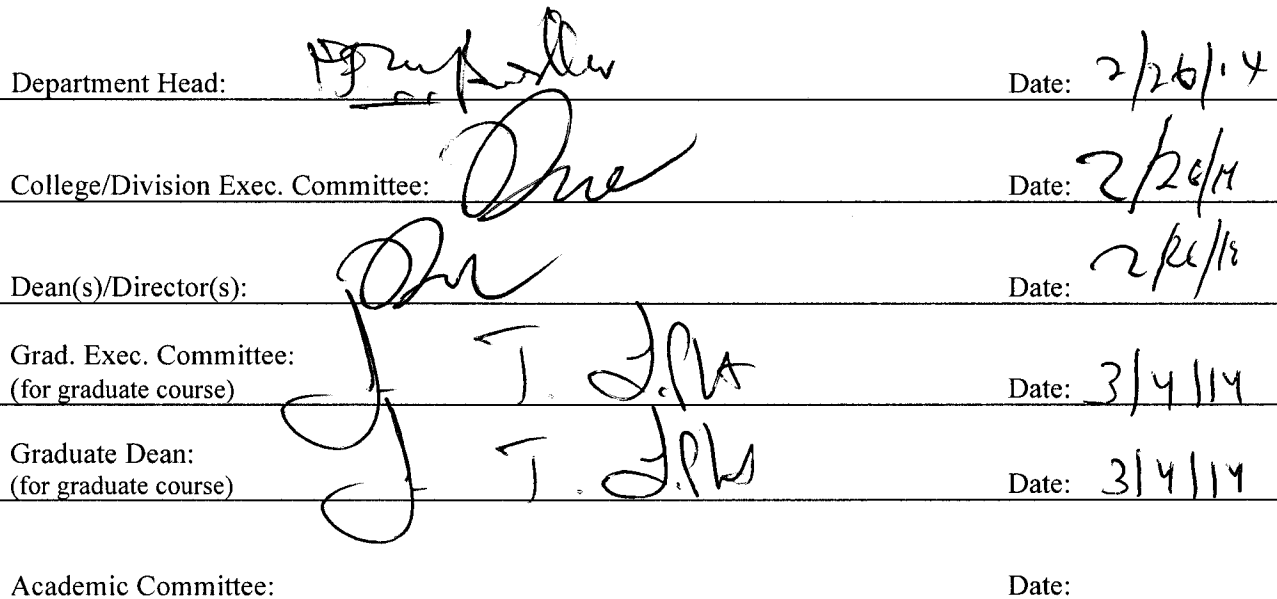 Department Head: Date: 2/26/14
College/Division Exec. Committee: Date: 2/26/14
Dean(s)/Director(s): Date: 2/26/
Grad. Exec. Committee:
(for graduate course) Date: 3/4/14
Graduate Dean:
(for graduate course) Date: 3/4/14
Academic Committee: Date: